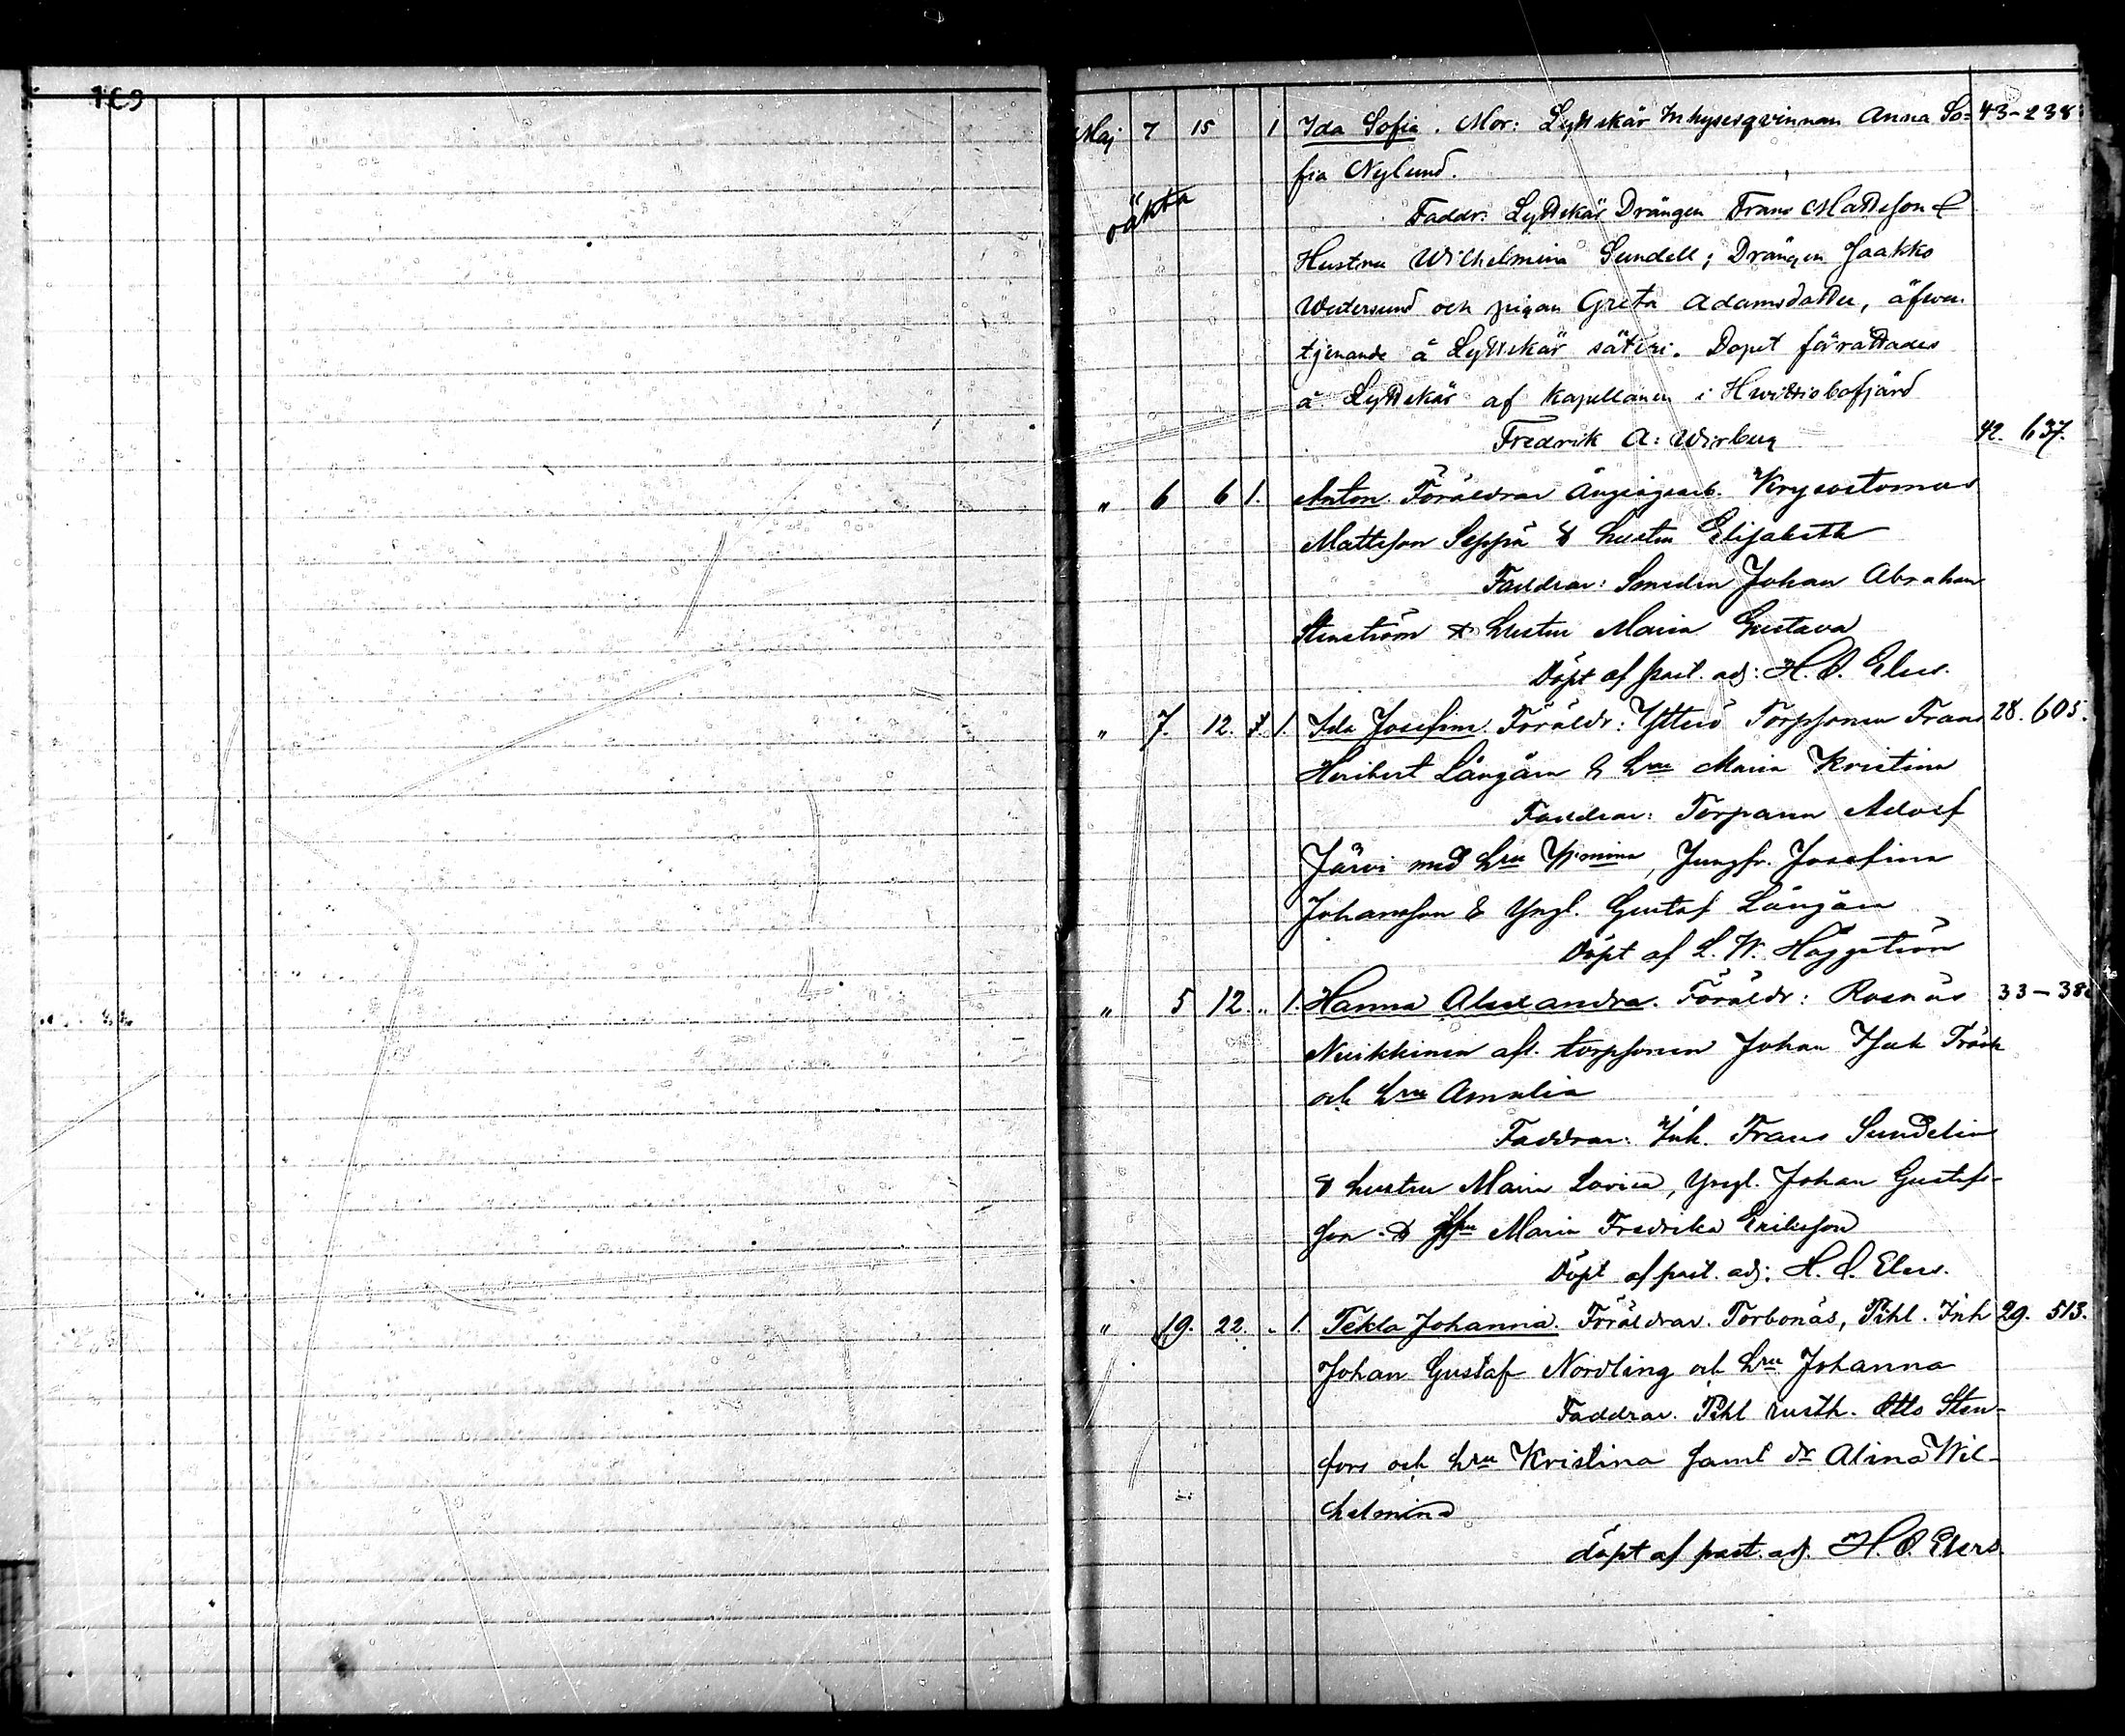 169
Maj 7 15 1 Ida Sofia. Mor: Lyttskär Inhysesqvinnan Anna So= 43-238
fia Nylund.
oäkta
Faddr: Lyttskär Drängen Frans Mattsson &
Hustru Wilhelmina Sundell; Drängen Jaakko
Westersund och pigan Greta Adamsdotter, äfven
tjenande å Lyttskär säteri. Dopet förrättades
å Lyttskär af Kapellanen i Hvittisbofjärd
Fredrik A: Wirberg
42. 637.
" 6 6 1. Anton. Föräldrar Krysostomus
Mattsson Seppä & hustru Elisabeth
Faddrar: Smeden Johan Abraham
Stenström & hustru Maria Gustava
Döpt af past. adj: H. O. Elers.
" 7. 12. 1. Ida Josefina. Föräldr: Ytterö Torpsonen Frans 28. 605.
Heribert Långäm & hru Maria Kristina
Faddrar: Torparen Adolf
Järvi med hru W:mina, Jungfr. Josefina
Johansson & Yngl. Gustaf Långäm
Döpt af L. W. Häggström
" 5 12. " 1. Hanna Alexandra. Föräldr: Rosnäs 33-38
Nuikkinen afl. torpsonen Johan Isak Träsk
och hru Amalia
Faddrar: Inh. Frans Sundelin
& hustru Maria Lovisa, Yngl. Johan Gustafs-
son & Maria Fredrika Eriksson
Döpt af past. adj: H. O. Elers.
" 19. 22. " 1. Tekla Johanna. Föräldrar. Torbonäs, Pihl. Inh 29. 513.
Johan Gustaf Nordling och hru Johanna
Faddrar. Pihl rusth. Otto Sten-
fors och hru Kristina samt dr Alina Wil-
helmina
döpt af past. adj. H. O. Elers.